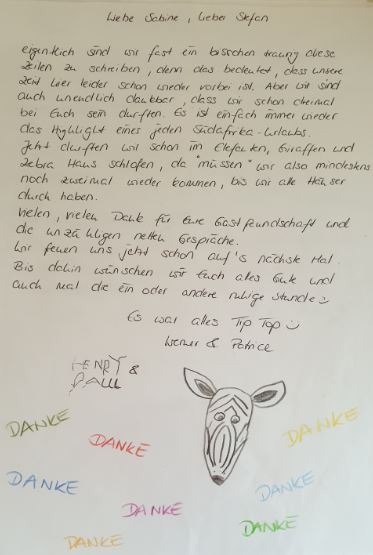 Liebe Sabine, lieber Stefan
eigentlich sind wir fast ein bisschen traurig diese
Zeilen zu schreiben, denn das bedeutet, dass unsere
Zeit hier leider schon wieder vorbei ist. Aber wir sind
auch unendlich dankbar, dass wir schon dreimal
bei Euch sein durften. Es ist einfach immer wieder
das Highlight eines jeden Südafrika-Urlaubs.
Jetzt durften wir schon im Elefanten, Giraffen und
Zebra Haus schlafen, da "müssen" wir also mindestens
noch zweimal wieder kommen, bis wir alle Häuser
durch haben.
Vielen, vielen Dank für Eure Gastfreundschaft und
die unzähligen netten Gespräche.
Wir freuen uns jetzt schon auf's nächste Mal.
Bis dahin wünschen wir Euch alles Gute und
auch mal die ein oder andere ruhige Stunde
Es war alles Tip Top
Werner & Patrice
HENRY &
PAUL
DANKE
DANKE
DANKE
DANKE
DANKE
DANKE
DANKE
DANKE